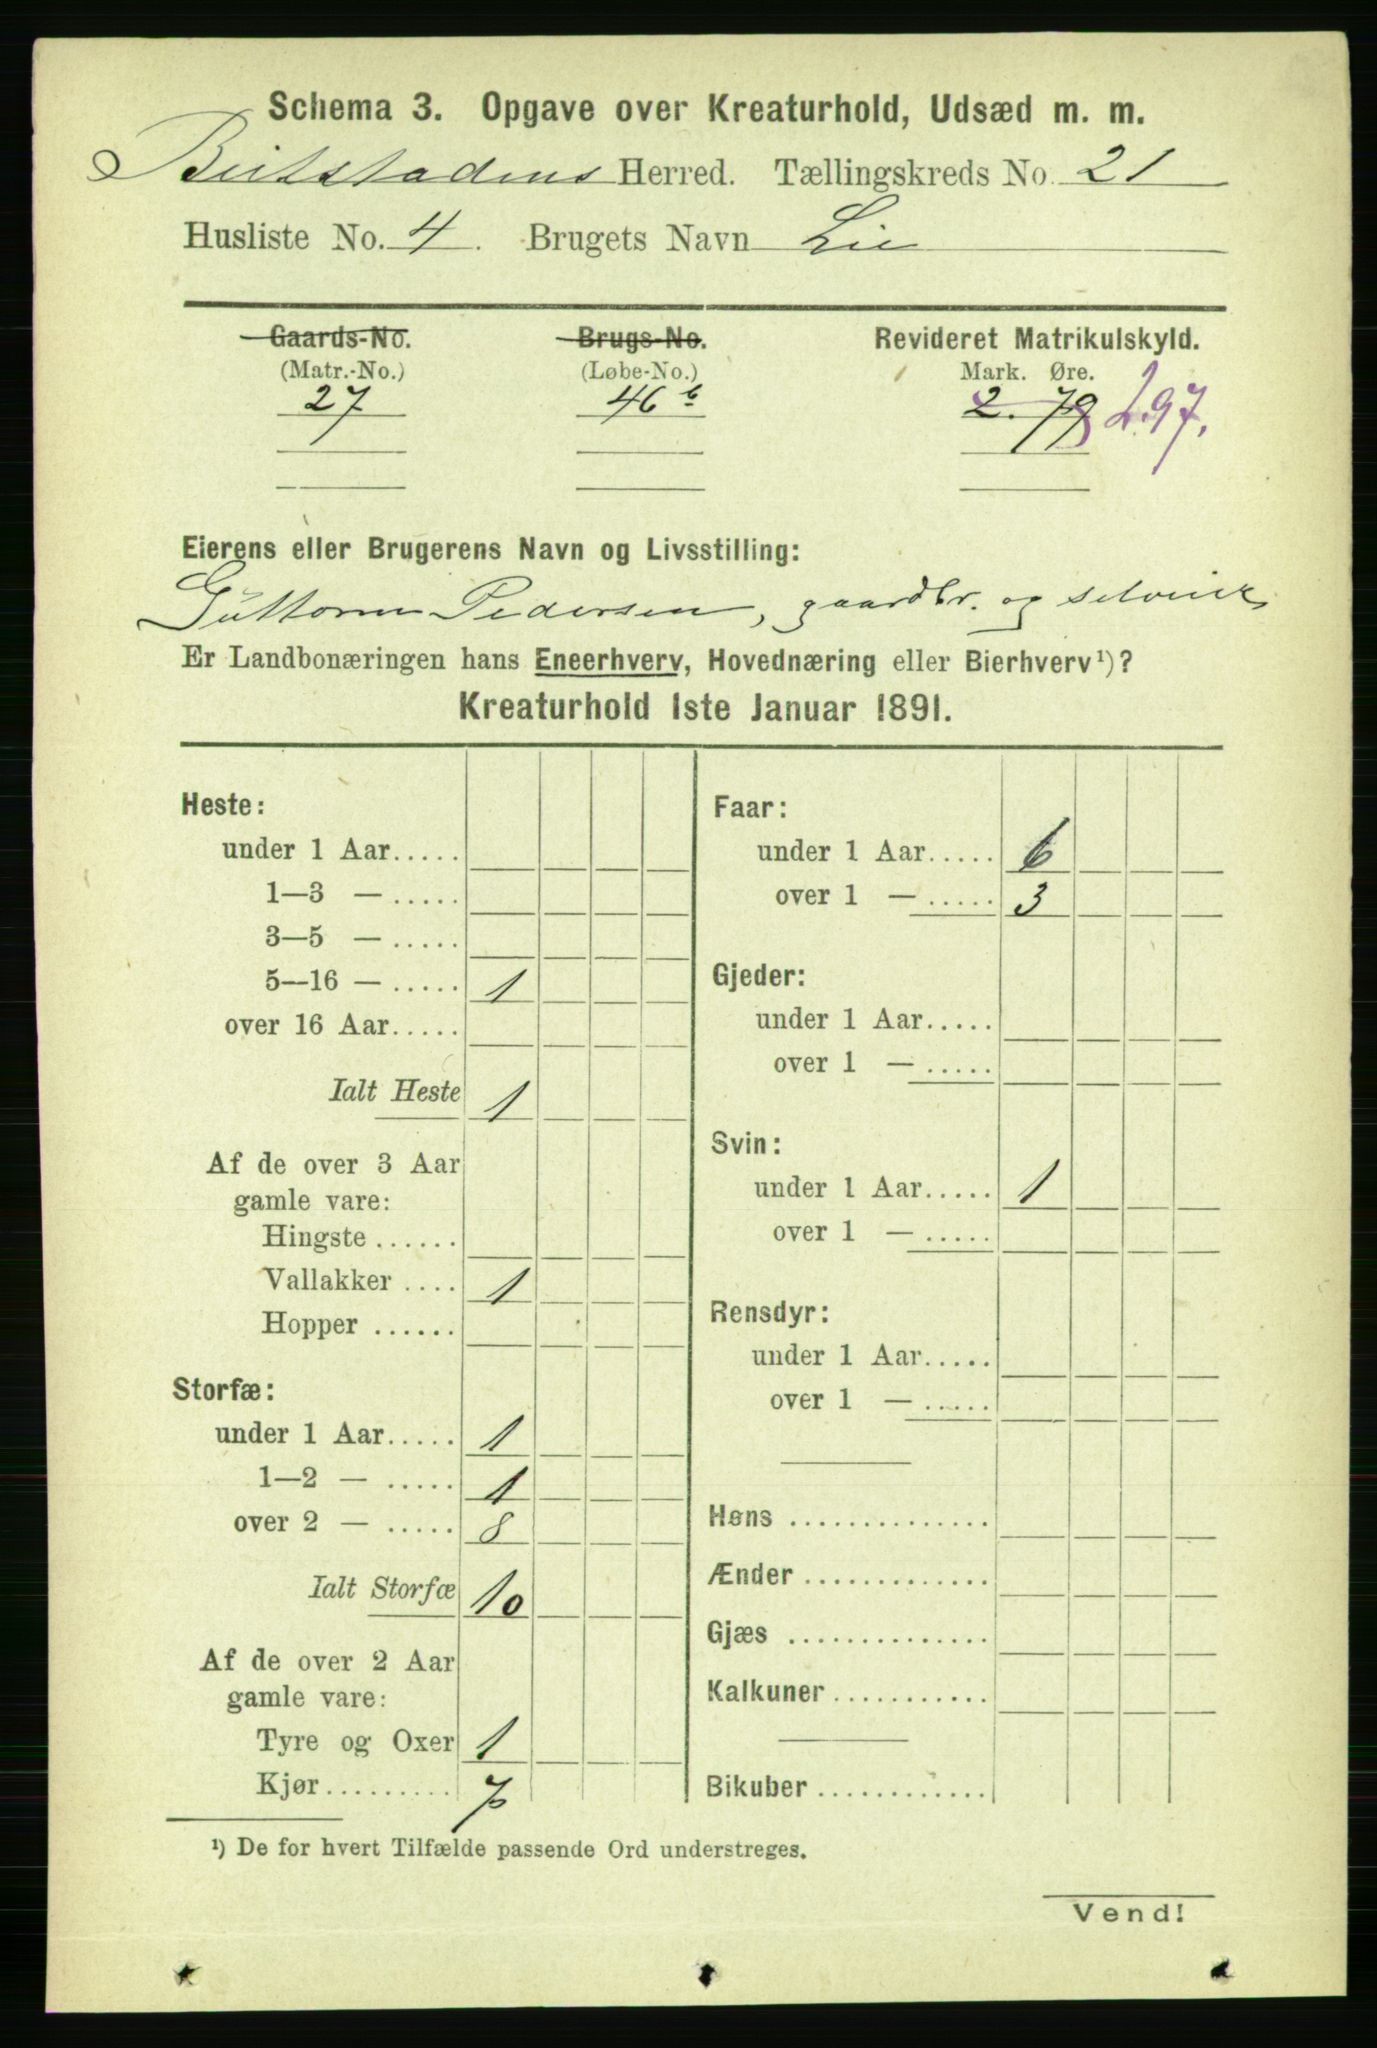 Schema 3. Opgave over Kreaturhold, Udsæd m. m.
Beitstadens Herred. Tællingskreds No. 21
Husliste No. 4. Brugets Navn Lie
Gaards-No. Brugs-No. Revideret Matrikulskyld.
(Matr.-No.) (Løbe-No.) Mark. Øre.
27 46 b 2. 79 2.97.
Eierens eller Brugerens Navn og Livsstilling:
Guttorm Pedersen, gaardbr. og selveier
Er Landbonæringen hans Eneerhverv, Hovednæring eller Bierhverv¹)?
Kreaturhold 1ste Januar 1891.
Heste:
under 1 Aar.....
1—3 — .....
3—5 — .....
5—16 — ..... 1
over 16 Aar.....
Ialt Heste 1
Af de over 3 Aar
gamle vare:
Hingste ......
Vallakker .... 1
Hopper ......
Storfæ:
under 1 Aar..... 1
1—2 — ..... 1
over 2 — ..... 8
Ialt Storfæ 10
Af de over 2 Aar
gamle vare:
Tyre og Oxer 1
Kjør......... 7
Faar:
under 1 Aar..... 6
over 1 — ..... 3
Gjeder:
under 1 Aar.....
over 1 — .....
Svin:
under 1 Aar..... 1
over 1 — .....
Rensdyr:
under 1 Aar.....
over 1 — .....
Høns ..............
Ænder .............
Gjæs ..............
Kalkuner ...........
Bikuber ............
¹) De for hvert Tilfælde passende Ord understreges.
Vend!